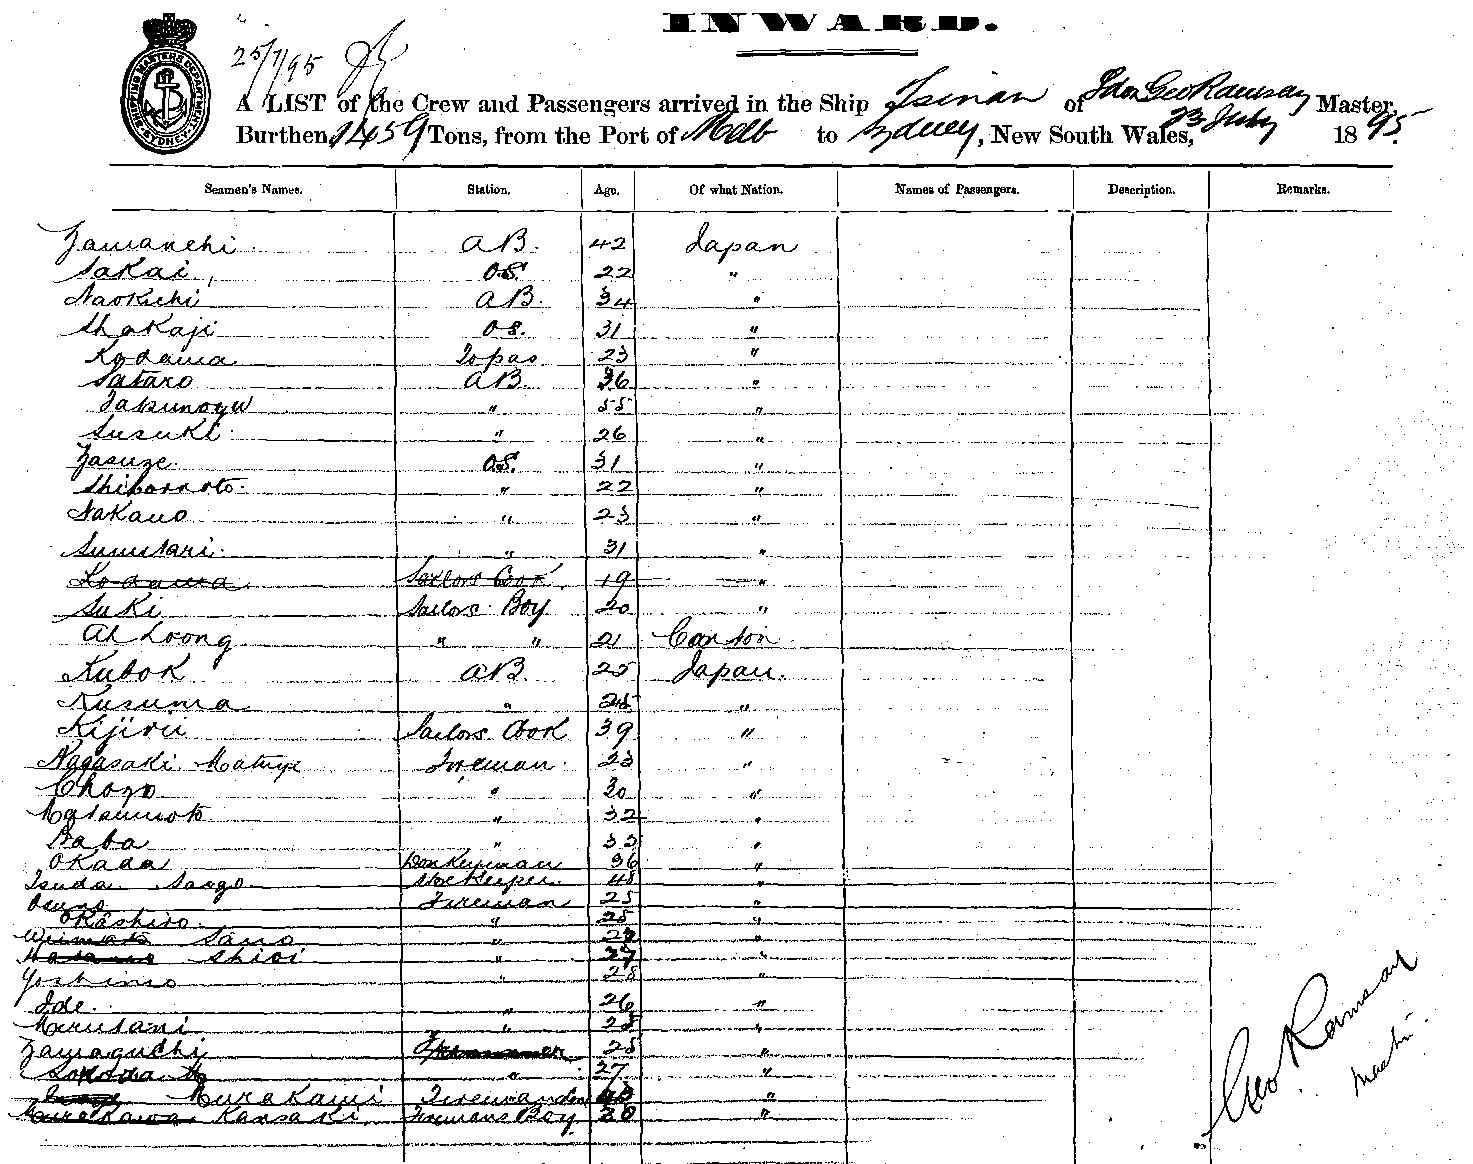 INWARD.
25/7/95
A LIST of the Crew and Passengers arrived in the Ship Tsinan of Geo Ramsay Master,
Burthen 1459 Tons, from the Port of Melb to Sydney, New South Wales, 23 July 1895.
SHIPPING MASTERS DEPARTMENT SYDNEY
Seamen's Names. Station. Age. Of what Nation. Names of Passengers. Description. Remarks.
Yamanchi AB. 42 Japan
Sakai O.S. 22 "
Naokichi AB. 34 "
Shakaji O.S. 31 "
Kodama Topas 23 "
Sataro AB. 36 "
" 55 "
Susuki " 26 "
Yasuze O.S. 31 "
Shibamoto " 22 "
Nakano " 23 "
Sumitani " 31 "
Kodama Sailors Cook 19 "
Suki Sailors Boy 20 "
Ah Loong " " 21 Canton
Kubok AB. 25 Japan.
Kusuma " "
Kijirii Sailors Cook 39 "
Nagasaki Fireman 23 "
Choyo " 30 "
Matsumoto " 32 "
Baba " 33 "
Okada Donkeyman 36 "
Tsuda Sango Storekeeper 48 "
Osuno Fireman 25 "
Okashiro " 25 "
Sano " "
Shioi " 27 "
Yoshino " 28 "
Ide " 26 "
Marutani " 25 "
Yamaguchi 28 "
" 27 "
Murakami "
Kansaki Firemans Boy 20 "
Geo Ramsay
Master